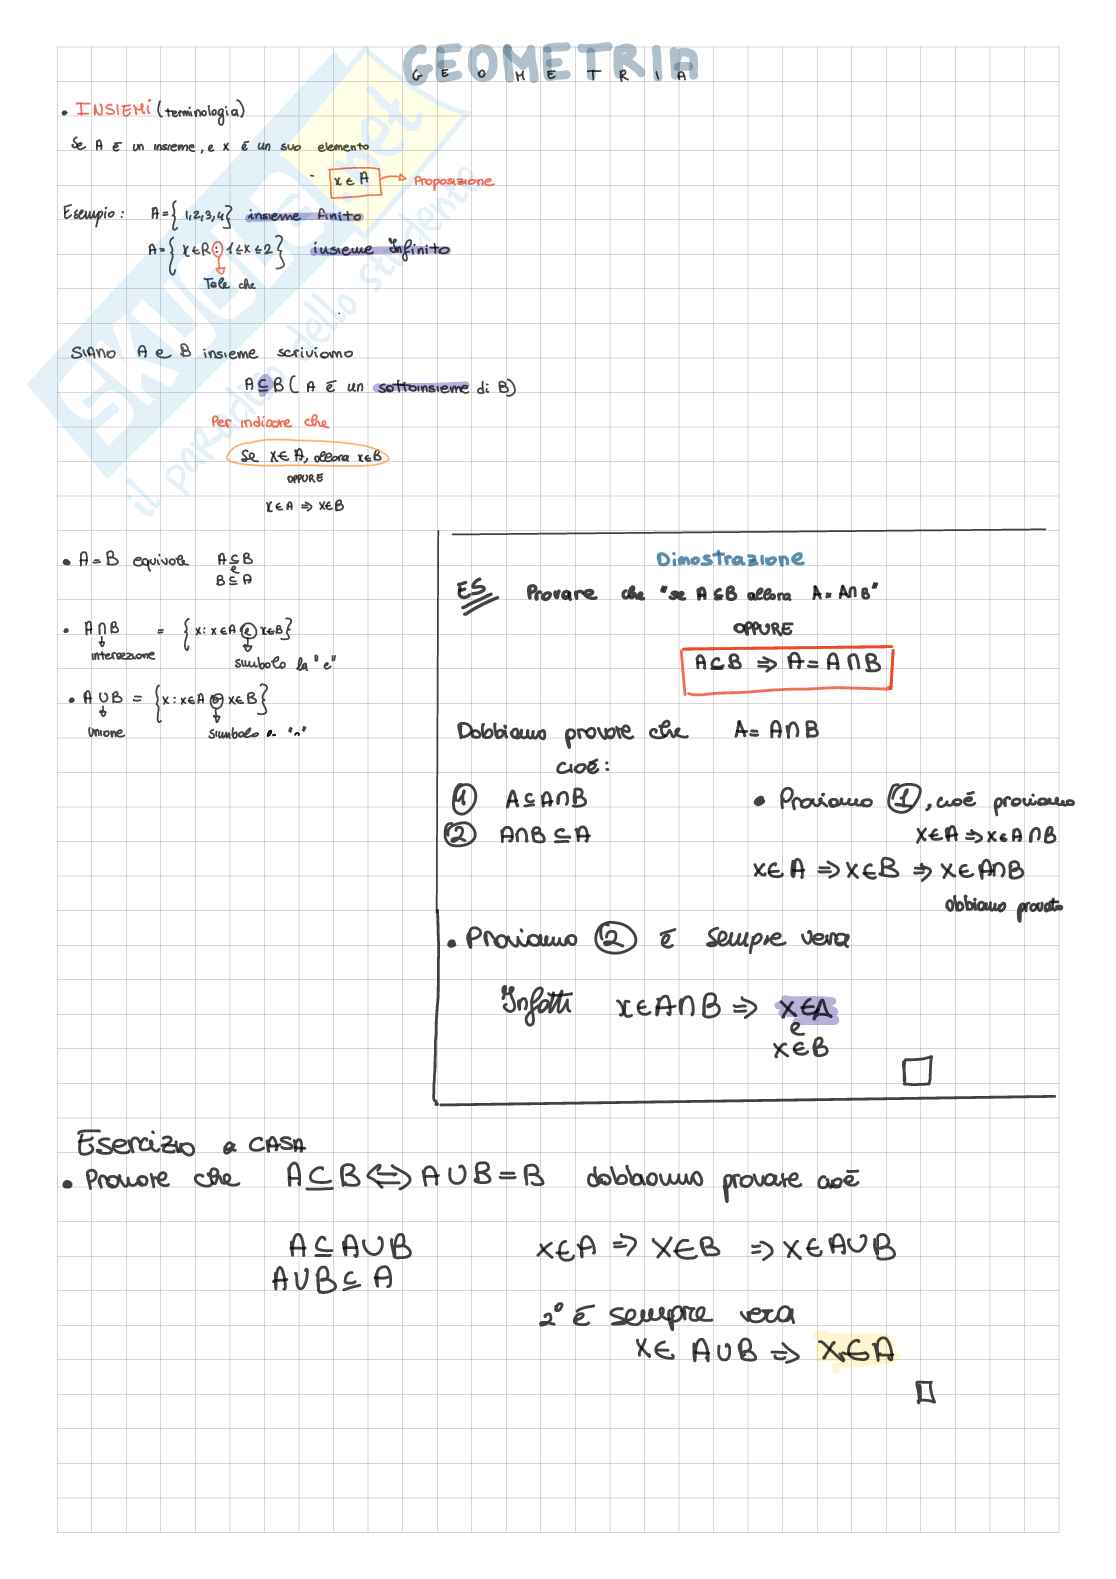 GEOMETRIA
GEOMETRIA
• INSIEMI (terminologia)
Se A è un insieme, e x è un suo elemento
x ∈ A → Proposizione
Esempio: A = { 1,2,3,4 } insieme finito
A = { x ∈ R : 1 ≤ x ≤ 2 } insieme Infinito
Tale che
SIANO A e B insieme scriviamo
A ⊆ B ( A è un sottoinsieme di B)
Per indicare che
Se x ∈ A, allora x ∈ B
OPPURE
x ∈ A ⇒ x ∈ B
• A = B equivale A ⊆ B
e
B ⊆ A
• A ∩ B = { x : x ∈ A e x ∈ B }
intersezione simbolo la "e"
• A ∪ B = { x : x ∈ A o x ∈ B }
Unione simbolo
Dimostrazione
ES Provare che "se A ⊆ B allora A = A ∩ B"
OPPURE
A ⊆ B ⇒ A = A ∩ B
Dobbiamo provare che A = A ∩ B
cioè:
1 A ⊆ A ∩ B
2 A ∩ B ⊆ A
• Proviamo 1, cioè proviamo
x ∈ A ⇒ x ∈ A ∩ B
x ∈ A ⇒ x ∈ B ⇒ x ∈ A ∩ B
abbiamo provato
• Proviamo 2 è sempre vera
Infatti x ∈ A ∩ B ⇒ x ∈ A
e
x ∈ B
Esercizio a CASA
• Provare che A ⊆ B ⇔ A ∪ B = B dobbiamo provare cioè
A ⊆ A ∪ B x ∈ A ⇒ x ∈ B ⇒ x ∈ A ∪ B
A ∪ B ⊆ A
2° è sempre vera
x ∈ A ∪ B ⇒ x ∈ A
SKUOLA.net
il paradiso dello studente